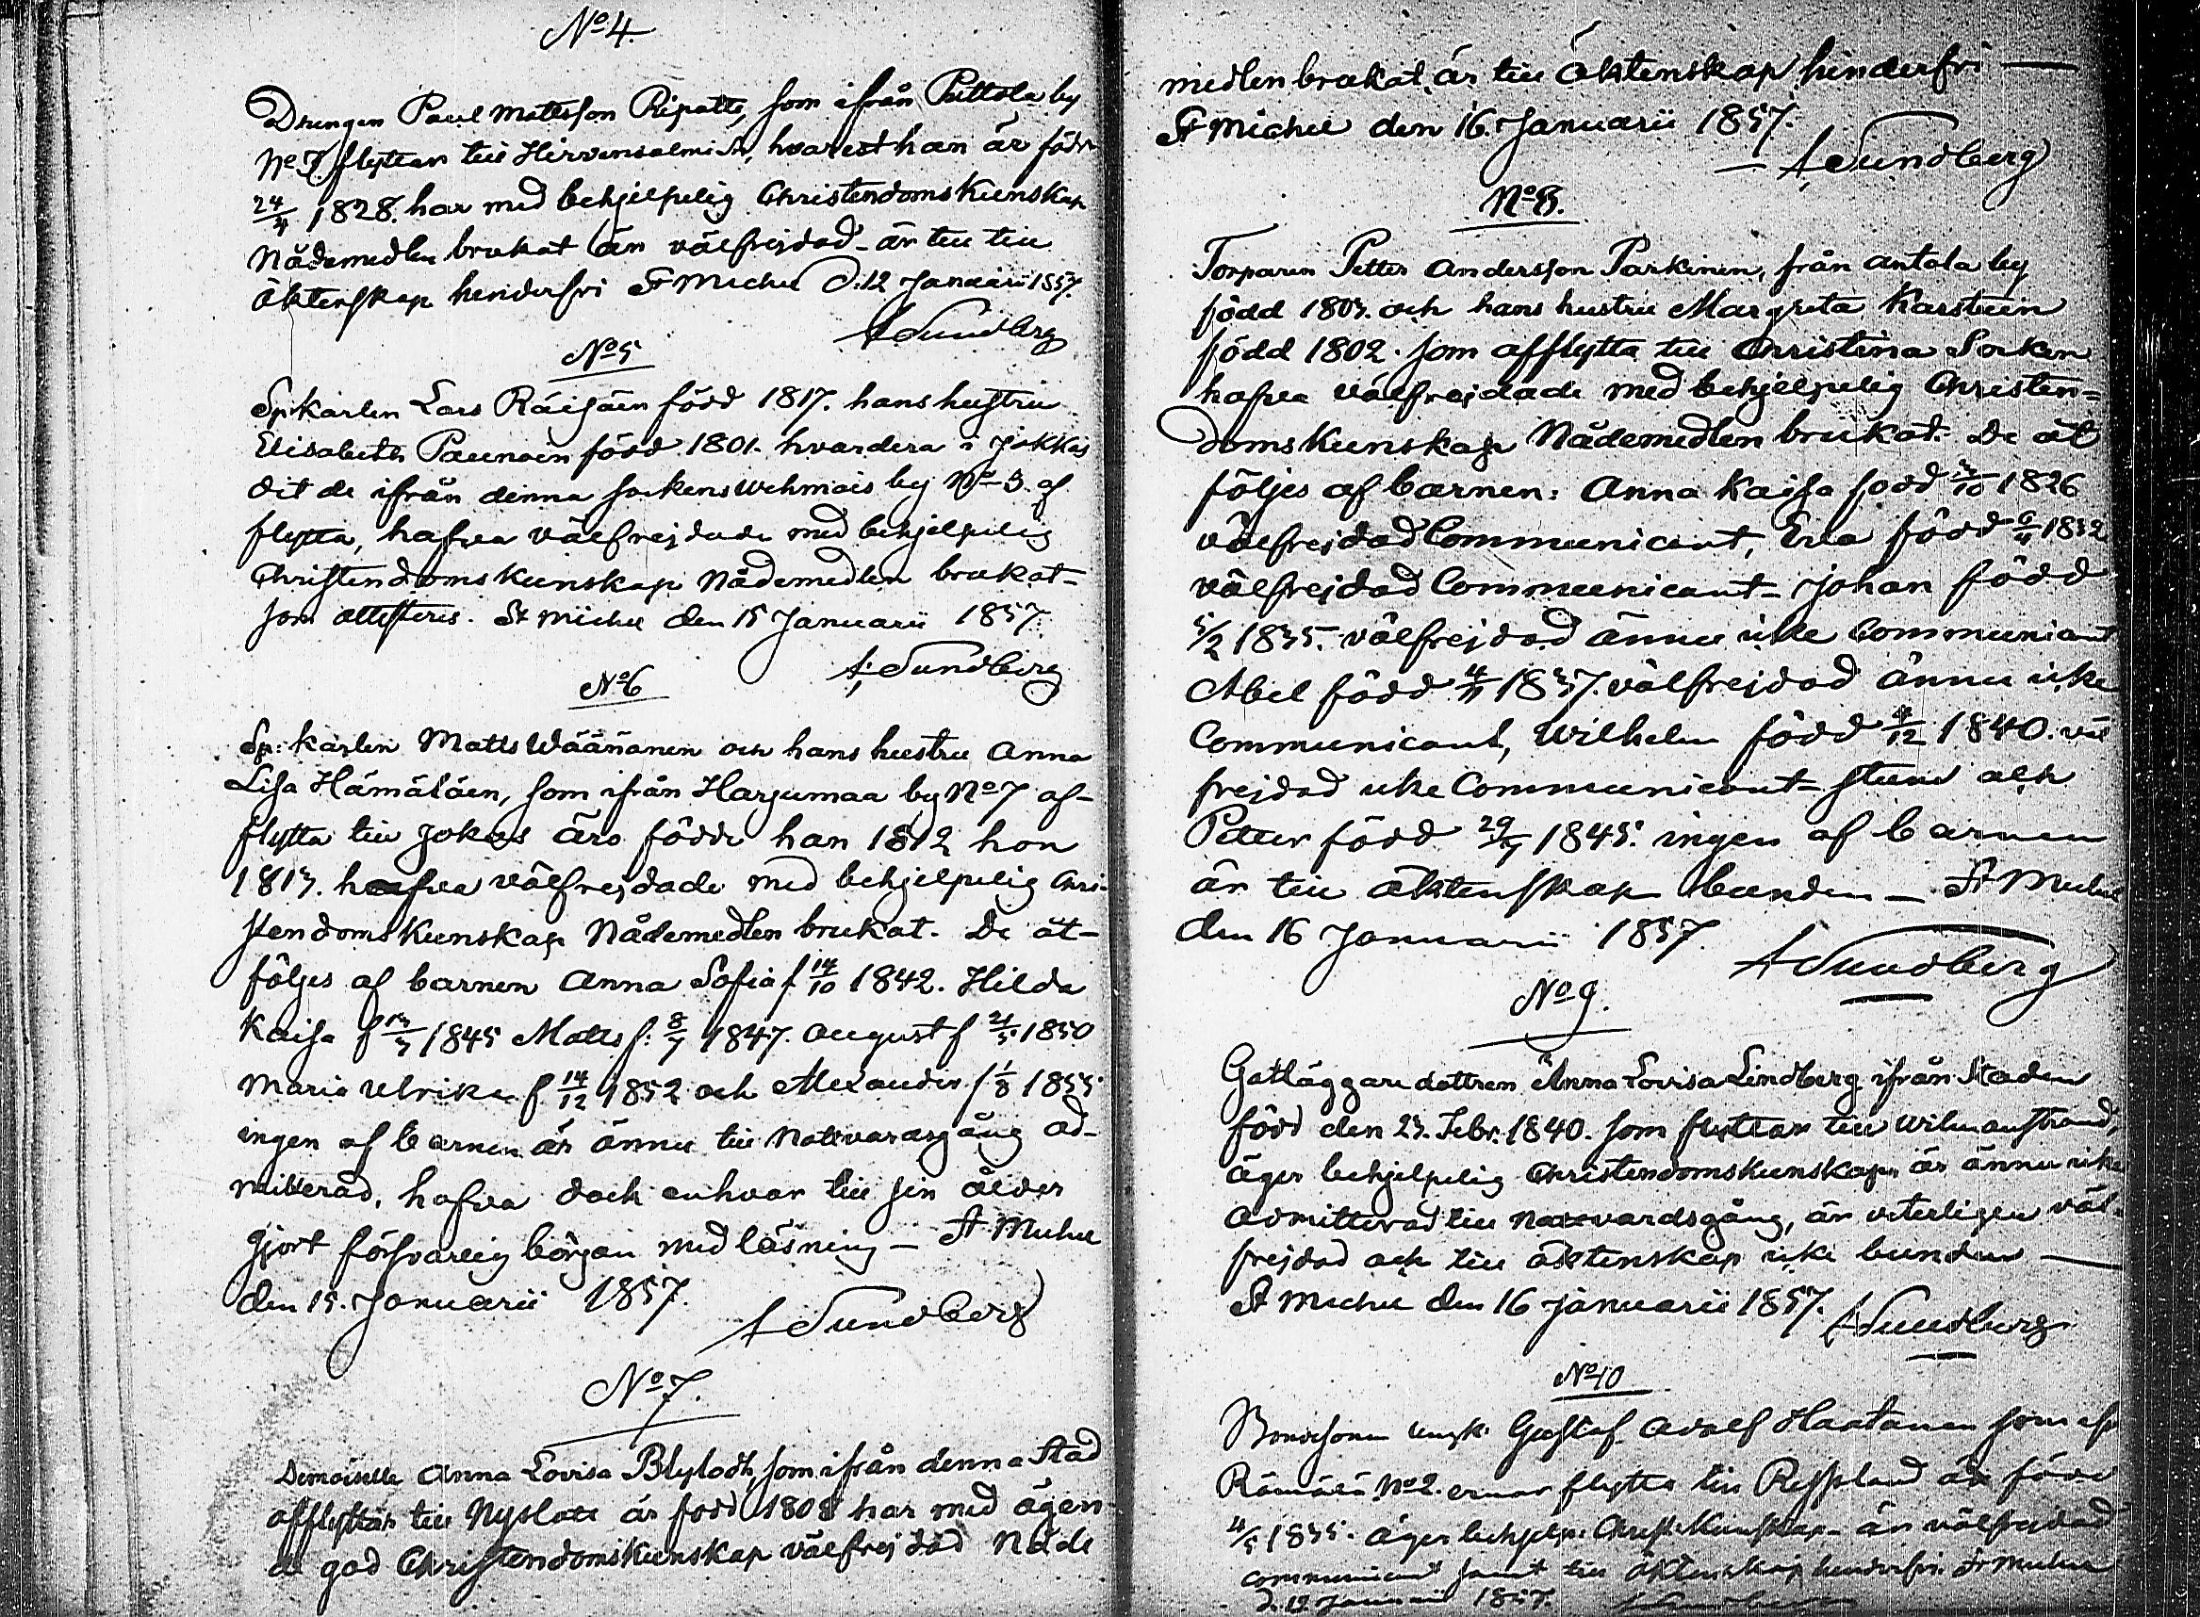 No 4.
Drengen Paul Mattsson Ripatti, som ifrån Pettola by
No 7. flyttar till Hirvensalmi Sn, hvarest han är född
24/4 1828. har med behjelpelig Christendoms Kunskap
Nådemedlen brukat är välfrejdad - är till
äktenskap hinderfri St Michel d. 12 Januarii 1857.
A Sundberg
No 5
Sp: karlen Lars Räisäin född 1817. hans hustru
Elisabeth Paunoin född 1801. hvardera i Jokkas
dit de ifrån denna sockens Wehmais by No 3. af
flytta, hafva välfrejdade med behjelpelig
Christendoms Kunskap Nådemedlen brukat -
som attesteres. St Michel den 15 Januarii 1857.
A: Sundberg
No 6
Sp: karlen Matts Wäänänen och hans hustru Anna
Lisa Hämäläin, som ifrån Harjumaa by No 7 af-
flytta till Jokkas äro födde han 1812 hon
1813. hafva välfrejdade med behjelpelig Chri-
stendoms Kunskap Nådemedlen brukat. De åt-
följes af barnen Anna Sofia f 14/10 1842. Hilda
Kaisa f 1845 Matts f: 8/7 1847. August f 21/5 1850
Maria Ulrika f 14/12 1852 och Alexander f 1/8 1855
ingen af barnen är ännu till Nattvardsgång ad-
mitterad, hafva dock enhvar till sin ålder
gjort försvarlig början med läsning - St Michel
den 15. Januarii 1857.
A Sundberg
No 7.
Demoiselle Anna Lovisa Blylodh, som ifrån denna Stad
afflyttar till Nyslott är född 1808 har med ägen-
de god Christendomskunskap välfrejdad Nåde
medlen brukat, är till Äktenskap hinderfri —
St Michel den 16. Januarii 1857.
— A Sundberg
No 8.
Torparen Petter Andersson Parkinen, från Antola by
född 1803. och hans hustru Margreta Karstuin
född 1802. som afflytta till Christina Socken
hafva välfrejdade med behjelpelig Christen=
doms Kunskap Nådemedlen brukat. De åt
följes af barnen: Anna Kaisa född 3/10 1826
välfrejdad Communicant, Eva född 6/4 1832
välfrejdad Communicant - Johan född
5/2 1835. välfrejdad ännu icke Communicant
Abel född 4/11 1837. välfrejdad ännu icke
Communicant, Wilhelm född 4/12 1840. väl
frejdad icke Communicant - och
Petter född 29/7 1845. ingen af barnen
är till äktenskap bunden — St Michel
den 16 Januarii 1857.
A Sundberg
No 9.
Gatläggare dottren Anna Lovisa Lindberg ifrån Staden
född den 23. Febr. 1840. som flyttar till Wilmanstrand,
äger behjelpelig Christendomskunskap, är ännu icke
admitterad till Nattvardsgång, är veterligen väl-
frejdad och till äktenskap icke bunden —
St Michel den 16 Januarii 1857.
A Sundberg
No 10
Bondesonen ungk. Gustaf Adolf Haatanen som
Rämälä No 2. ernar flytta till Ryssland är född
4/5 1835. äger behjelp: Christ: Kunskap - är välfrejdad
communicant samt till äktenskap hinderfri. St Michel
d. 19 Januarii 1857.